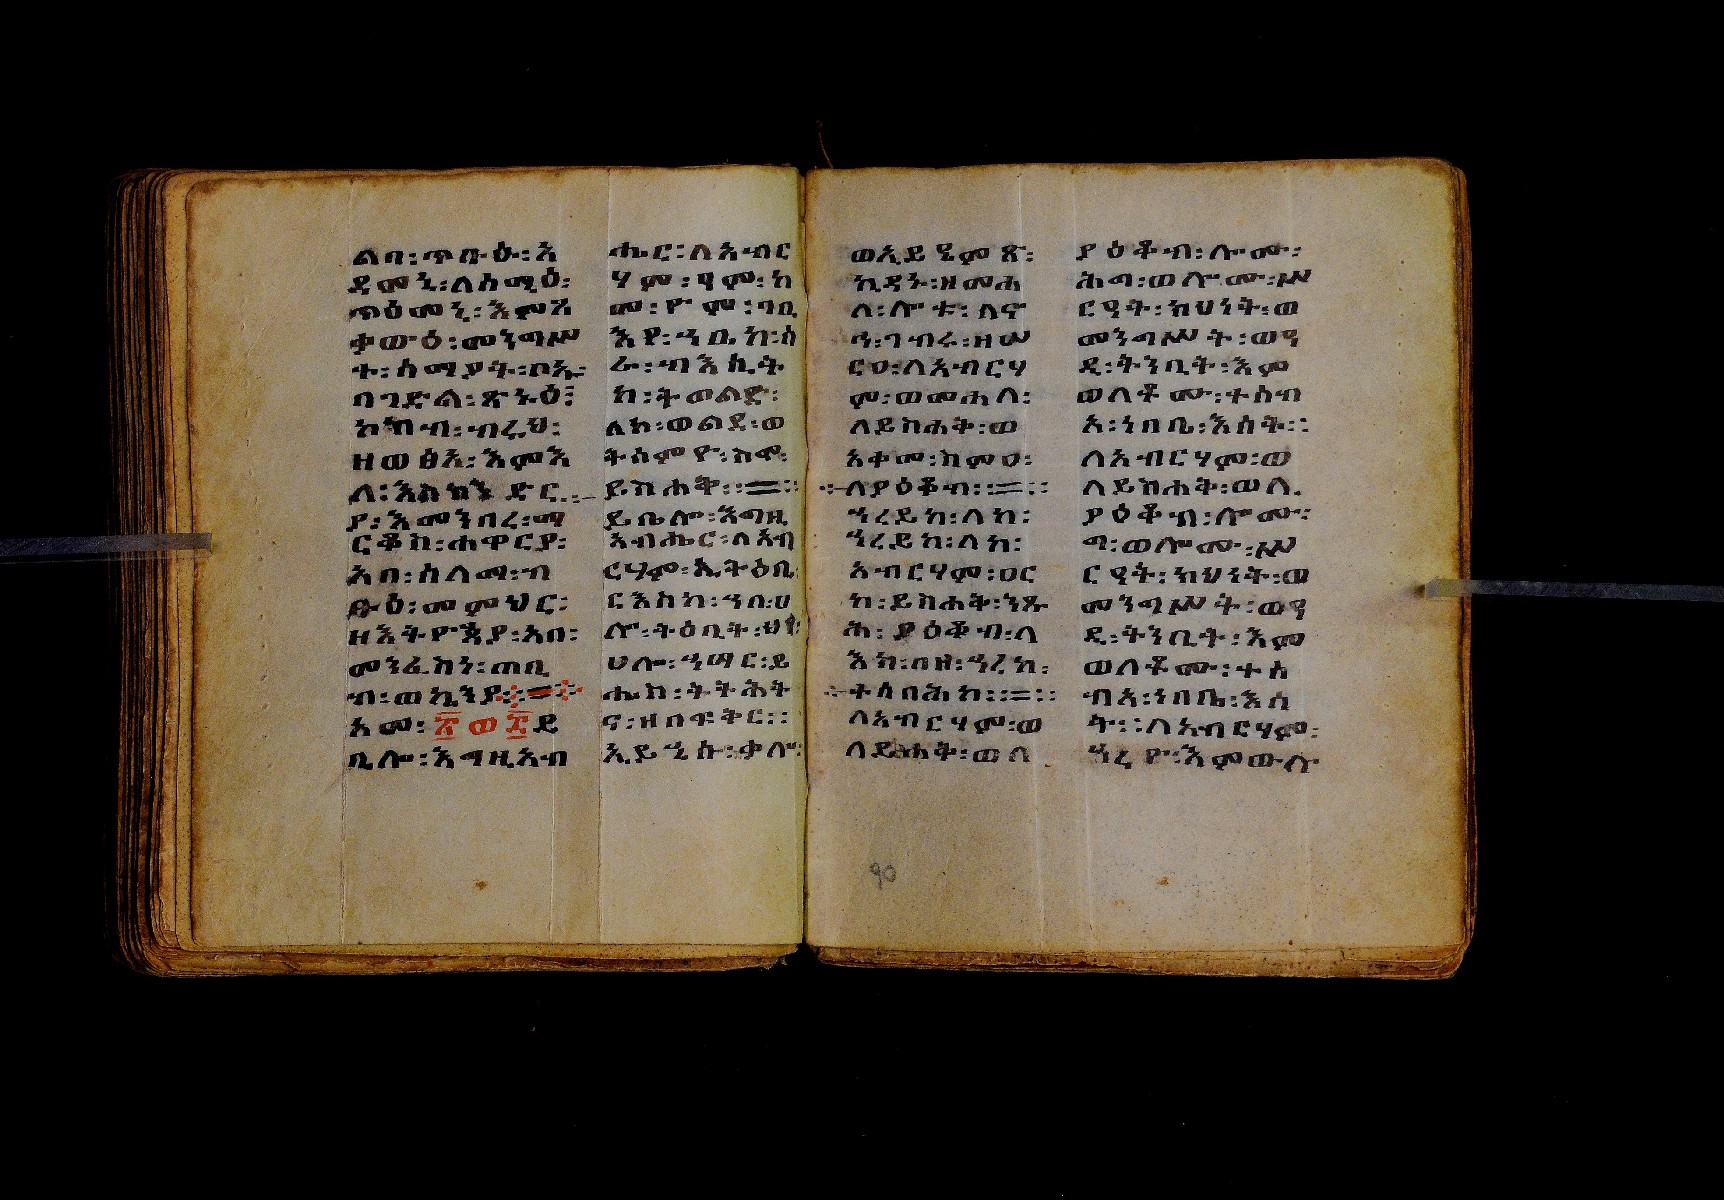 ልባ፡ጥቡዕ፡አ
ደመነ፡ለሰሚዕ፡
ጥዕመነ፡እምአ
ቀወዕ፡መንግሥ
ተ፡ሰማያት፡ቦኡ፡
በገድል፡ጽኑዕ፤
ኮከብ፡ብሩህ፡
ዘወፅአ፡እምእ
ለ፡እስክንድር
ያ፡እመንበረ፡ማ
ርቆስ፡ሐዋርያ፡
አባ፡ሰላማ፡ብ
ፁዕ፡መምህር፡
ዘኢትዮጵያ፡አበ፡
መንፈስነ፡ጠቢ
ብ፡ወኪንያ፡፡=፡፡
አመ፡፳ወ፰ይ
ቢሎ፡እግዚአብ
ሔር፡ለአብር
ሃም፡ሃም፡ከ
መ፡ዮም፡ገቢ
እየ፡ኀቤከ፡ሳ
ራ፡ብእሲት
ከ፡ትወልድ፡
ለከ፡ወልደ፡ወ
ትሰምዮ፡ስሞ፡
ይስሐቅ፡፡=፡፡
ይቤሎ፡እግዚ
አብሔር፡ለአብ
ርሃም፡ኢትዕቢ
ርእስከ፡ኀበ፡ሀ
ሎ፡ትዕቢት፡ህየ፡
ሀሎ፡ኀሣር፡ይ
ሔከ፡ትትሕት
ና፡ዘበፍቅር፡፡
ኢይኄሱ፡ቃሎ፡
ወኢይኄምጽ፡
ኪዳኑ፡ዘመሐ
ለ፡ሎቱ፡ለኖ
ኀ፡ገብሩ፡ዘሠ
ርዐ፡ለአብርሃ
ም፡ወመሐለ፡
ለይስሐቅ፡ወ
አቀመ፡ስምዐ፡
ለያዕቆብ፡፡=፡፡
ኀረይከ፡ለከ፡
ኀረይከ፡ለከ፡
አብርሃም፡ዐር
ከ፡ይስሐቅ፡ንጹ
ሕ፡ያዕቆብ፡ለ
እከ፡በዘ፡ኀረከ፡
ተሰባሕከ፡፡=፡፡
ለአብርሃም፡ወ
ለይስሐቅ፡ወለ
ያዕቆብ፡ሎሙ፡
ሕግ፡ወሎሙ፡ሥ
ርዓት፡ክህነት፡ወ
መንግሥት፡ወዓ
ዲ፡ትንቢት፡እም
ወለቶሙ፡ተሰብ
አ፡ነበቤ፡እሳት፡፡
ለአብርሃም፡ወ
ለይስሐቅ፡ወለ
ያዕቆብ፡ሎሙ፡
ግ፡ወሎሙ፡ሥ
ርዓት፡ክህነት፡ወ
መንግሥት፡ወዓ
ዲ፡ትንቢት፡እም
ወለቶሙ፡ተሰ
ብአ፡ነበቤ፡እሳ
ት፡፡ለአብርሃም፡
ኀረዮ፡እምውሉ
90